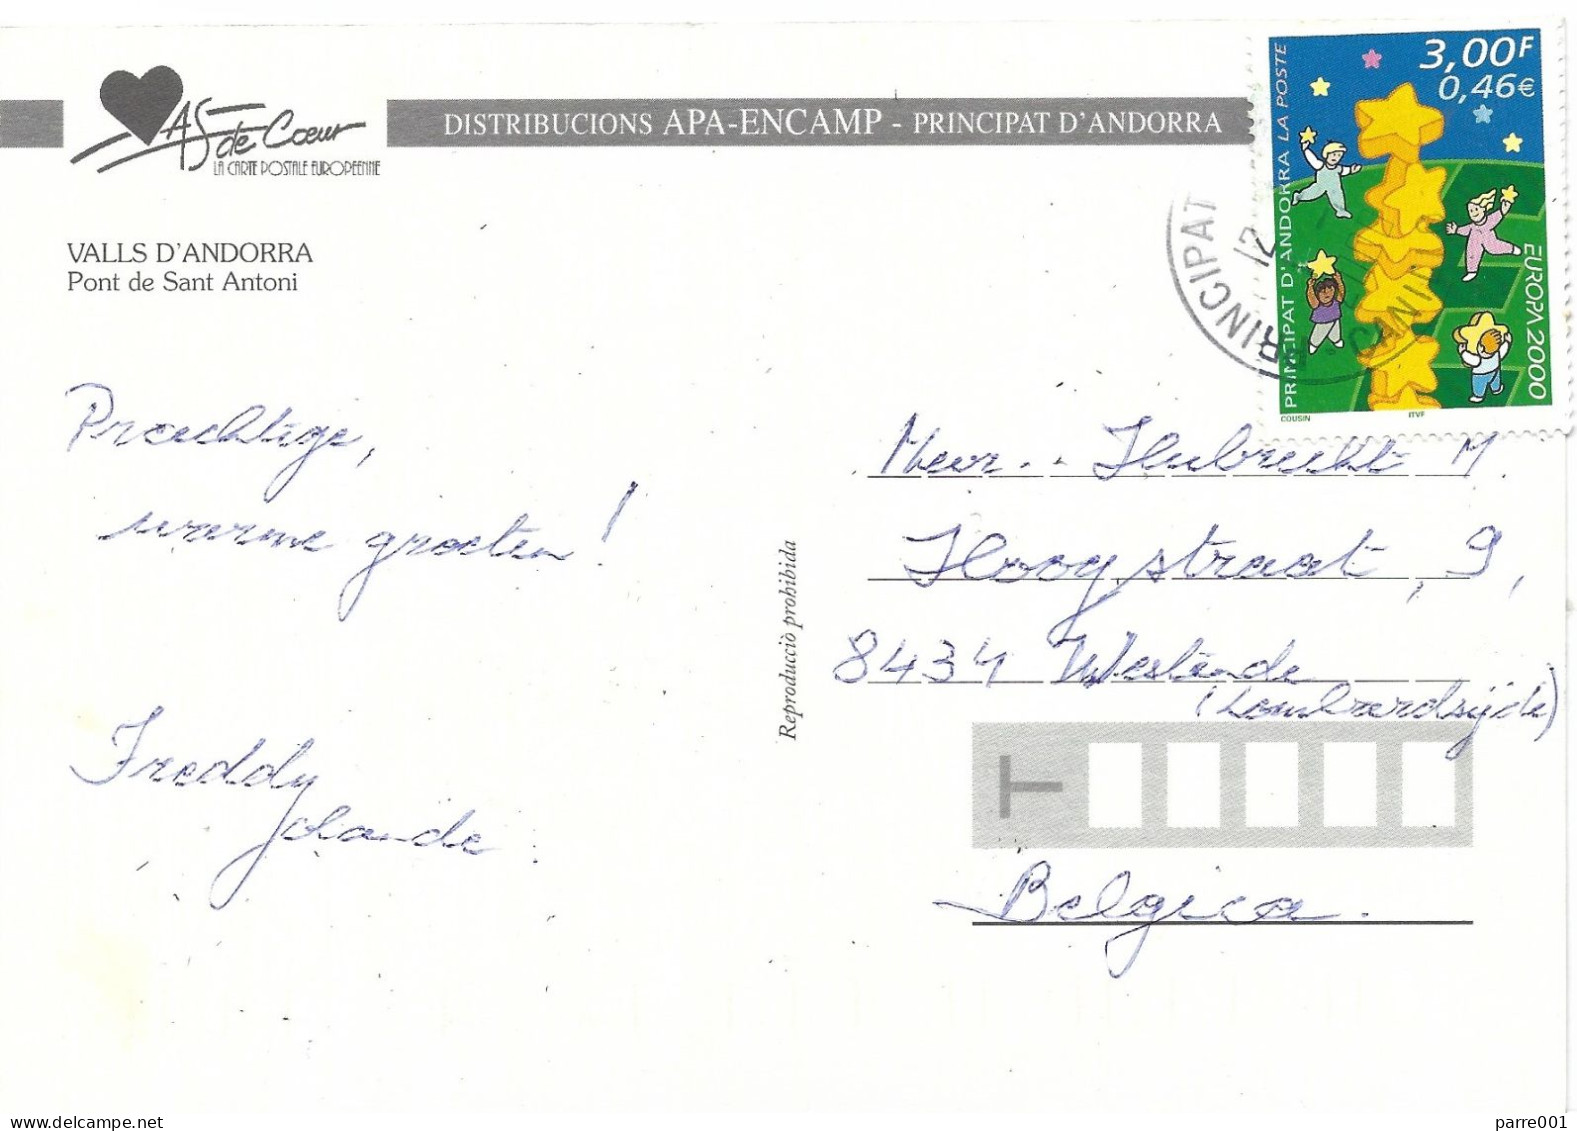 As de Cœur
LA CARTE POSTALE EUROPÉENNE
DISTRIBUCIONS APA-ENCAMP - PRINCIPAT D'ANDORRA
3,00F
0,46€
PRINCIPAT D'ANDORRA LA POSTE
EUROPA 2000
COUSIN
ITVF
PRINCIPAT
12
CANI
VALLS D'ANDORRA
Pont de Sant Antoni
Prachtige,
warme groeten!
Freddy
Jolande
Reproducció prohibida
Hubrecht M.
Hoogstraat, 9,
8434 Westende
(Lombardsijde)
T
Belgica.
parre001